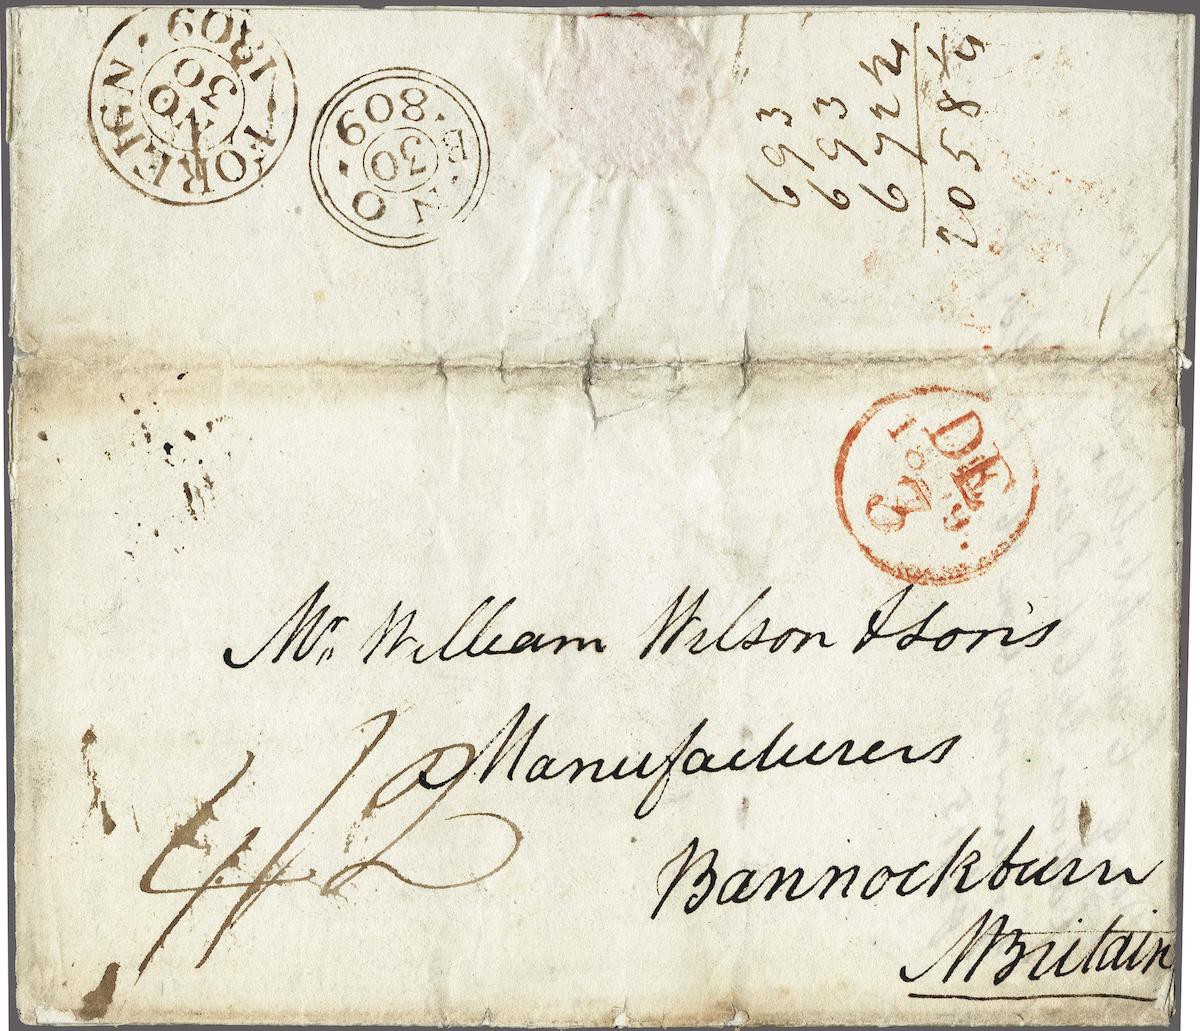 FOREIGN
NO
30
1809
E·NO
30
·809·
693
693
6722
DE
Mr. William Wilson & Son's
Manufacturers
Bannockburn
N Britain
4/2